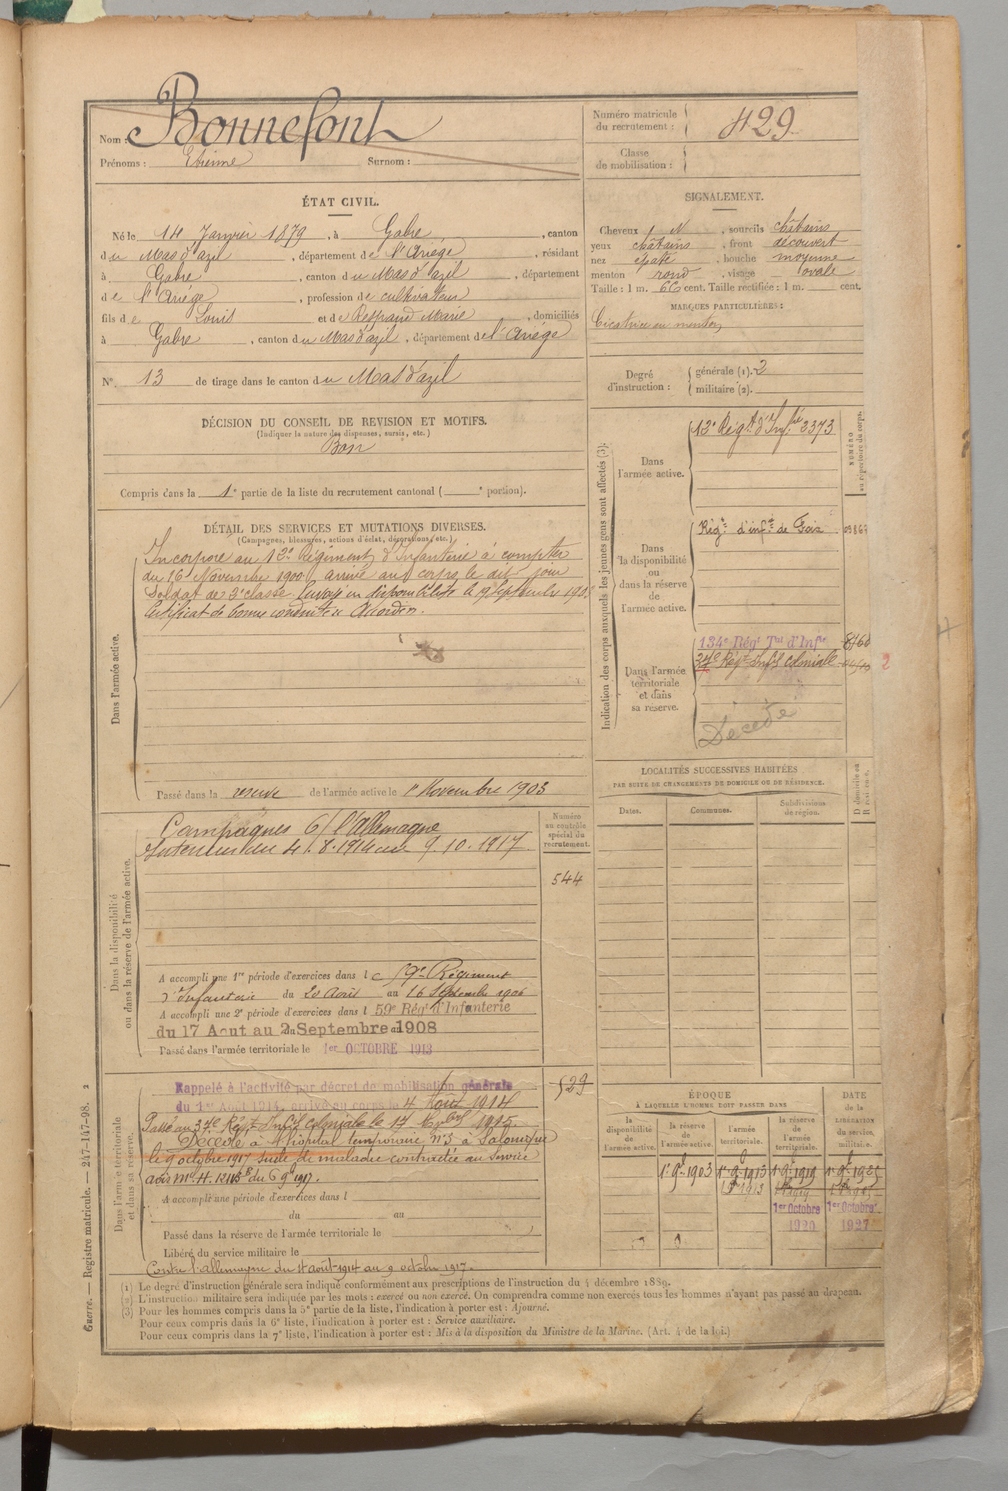 Nom : Bonnefont
Prénoms : Etienne Surnom :
Numéro matricule du recrutement : 429
Classe de mobilisation :
ÉTAT CIVIL.
Né le 14 Janvier 1879, à Gabre, canton
du Mas d'azil, département de l'Ariège, résidant
à Gabre, canton du Mas d'azil, département
de l'Ariége, profession de cultivateur
fils de Louis et de Respaud Marie, domiciliés
à Gabre, canton du Mas d'azil, département de l'Ariége
N° 13 de tirage dans le canton du Mas d'azil
SIGNALEMENT.
Cheveux N, sourcils châtains
yeux châtains, front découvert
nez épaté, bouche moyenne
menton rond, visage ovale
Taille : 1 m. 66 cent. Taille rectifiée : 1 m. cent.
MARQUES PARTICULIÈRES :
Cicatrice au menton
Degré d'instruction : générale (1). 2
militaire (2).
DÉCISION DU CONSEIL DE REVISION ET MOTIFS.
(Indiquer la nature des dispenses, sursis, etc.)
Bon
Compris dans la 1e partie de la liste du recrutement cantonal ( e portion).
DÉTAIL DES SERVICES ET MUTATIONS DIVERSES.
(Campagnes, blessures, actions d'éclat, décorations, etc.)
Dans l'armée active.
Incorporé au 12e Régiment d'Infanterie à compter
du 16 Novembre 1900 arrivé au corps le dit jour
Soldat de 2e classe. Envoyé en disponibilité le 9 septembre 1903
Certificat de bonne conduite Accordé.
Passé dans la réserve de l'armée active le 1er Novembre 1903
Indication des corps auxquels les jeunes gens sont affectés (3).
NUMÉRO au répertoire du corps.
Dans l'armée active.
12e Régt d'Infrie 3373
Dans la disponibilité ou dans la réserve de l'armée active.
Régt d'infie de Foix
Dans l'armée territoriale et dans sa réserve.
134e Régt Tal d'Infie
37e Régt Infie coloniale
Décédé
2
LOCALITÉS SUCCESSIVES HABITÉES
PAR SUITE DE CHANGEMENTS DE DOMICILE OU DE RÉSIDENCE.
Dates.
Communes.
Subdivisions de région.
Dans la disponibilité ou dans la réserve de l'armée active.
Numéro au contrôle spécial du recrutement.
544
Campagnes C/ l'Allemagne
Intérieur du 4.8.1914 au 9.10.1917
A accompli une 1re période d'exercices dans le 59e Régiment
d'Infanterie du 20 Août au 16 Septembre 1906
A accompli une 2e période d'exercices dans l 59e Régt d'Infanterie
du 17 Aout au 2 Septembre 1908
Passé dans l'armée territoriale le 1er OCTOBRE 1913
Dans l'armée territoriale et dans sa réserve.
529
Rappelé à l'activité par décret de mobilisation générale
du 1er Août 1914, arrivé au corps le 4 Août 1914
Passé au 37e Régt Infie coloniale le 14 1915.
Décédé à l'hôpital temporaire N°3 à Salonique
le 9 octobre 1917 suite de maladie contractée au Service
avis mel H. 12118 du 6 9b 1917.
A accompli une période d'exercices dans l
du au
Passé dans la réserve de l'armée territoriale le
Libéré du service militaire le
Contre l'allemagne du 4 août 1914 au 9 octobre 1917.
ÉPOQUE
À LAQUELLE L'HOMME DOIT PASSER DANS
la disponibilité de l'armée active.
la réserve de l'armée active.
l'armée territoriale.
la réserve de l'armée territoriale.
DATE de la LIBÉRATION du service militaire.
1er 9b 1903
1er 9b 1913
1er 9b 1919
1er Octobre 1920
1er Octobre 1927
(1) Le degré d'instruction générale sera indiqué conformément aux prescriptions de l'instruction du 4 décembre 1889.
(2) L'instruction militaire sera indiquée par les mots : exercé ou non exercé. On comprendra comme non exercés tous les hommes n'ayant pas passé au drapeau.
(3) Pour les hommes compris dans la 5e partie de la liste, l'indication à porter est : Ajourné.
Pour ceux compris dans la 6e liste, l'indication à porter est : Service auxiliaire.
Pour ceux compris dans la 7e liste, l'indication à porter est : Mis à la disposition du Ministre de la Marine. (Art. 4 de la loi.)
Guerre. — Registre matricule. — 247-147-98. 2